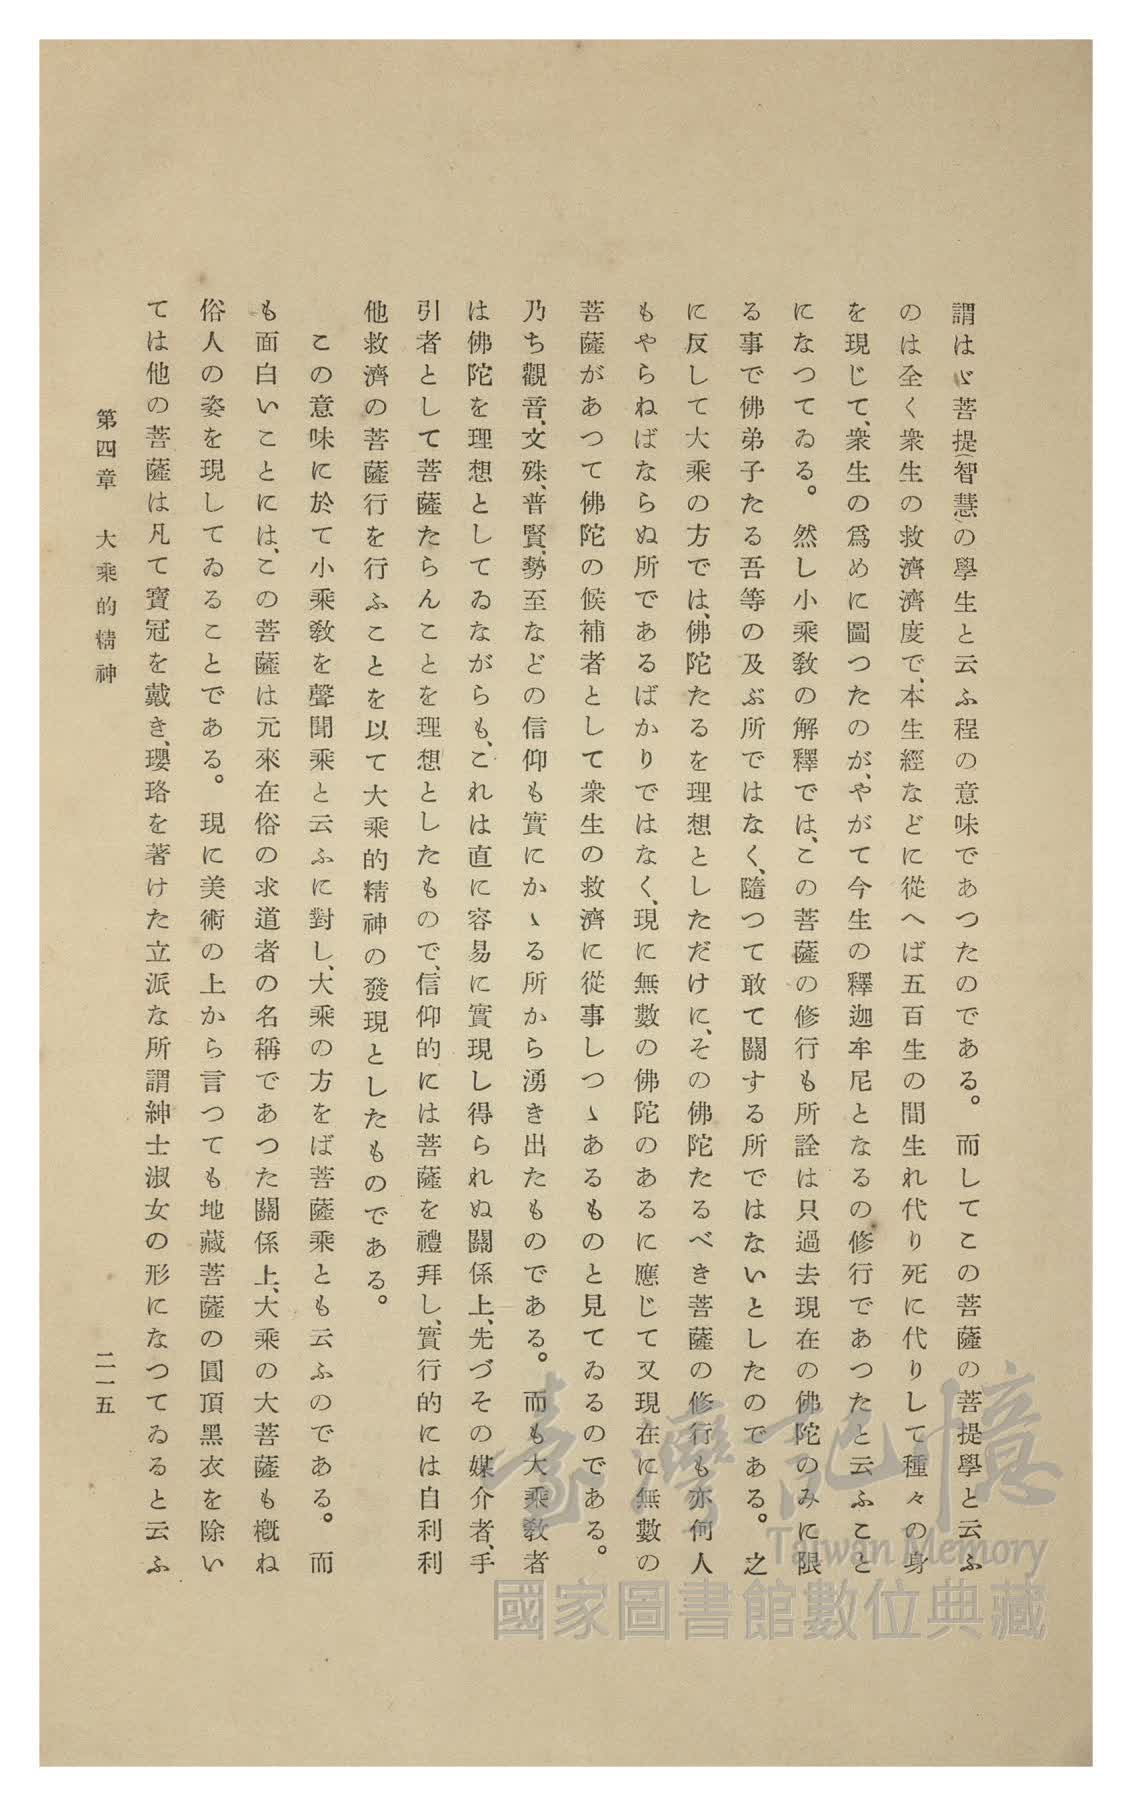 謂はゞ菩提(智慧)の學生と云ふ程の意味であつたのである。而してこの菩薩の菩提學と云ふ
のは全く衆生の救濟濟度で、本生經などに從へば五百生の間生れ代り死に代りして種々の身
を現じて、衆生の爲めに圖つたのが、やがて今生の釋迦牟尼となるの修行であつたと云ふこと
になつてゐる。然し小乘教の解釋では、この菩薩の修行も所詮は只過去現在の佛陀のみに限
る事で佛弟子たる吾等の及ぶ所ではなく、隨つて敢て關する所ではないとしたのである。之
に反して大乘の方では、佛陀たるを理想としただけに、その佛陀たるべき菩薩の修行も亦何人
もやらねばならぬ所であるばかりではなく、現に無數の佛陀のあるに應じて又現在に無數の
菩薩があつて佛陀の候補者として衆生の救濟に從事しつゝあるものと見てゐるのである。
乃ち觀音、文殊、普賢、勢至などの信仰も實にかゝる所から湧き出たものである。而も大乘教者
は佛陀を理想としてゐながらも、これは直に容易に實現し得られぬ關係上、先づその媒介者、手
引者として菩薩たらんことを理想としたもので、信仰的には菩薩を禮拜し、實行的には自利利
他救濟の菩薩行を行ふことを以て大乘的精神の發現としたものである。
この意味に於て小乘教を聲聞乘と云ふに對し、大乘の方をば菩薩乘とも云ふのである。而
も面白いことには、この菩薩は元來在俗の求道者の名稱であつた關係上、大乘の大菩薩も槪ね
俗人の姿を現してゐることである。現に美術の上から言つても地藏菩薩の圓頂黑衣を除い
ては他の菩薩は凡て寶冠を戴き、瓔珞を著けた立派な所謂紳士淑女の形になつてゐると云ふ
第四章 大乘的精神
二一五
臺灣記憶
Taiwan Memory
國家圖書館數位典藏